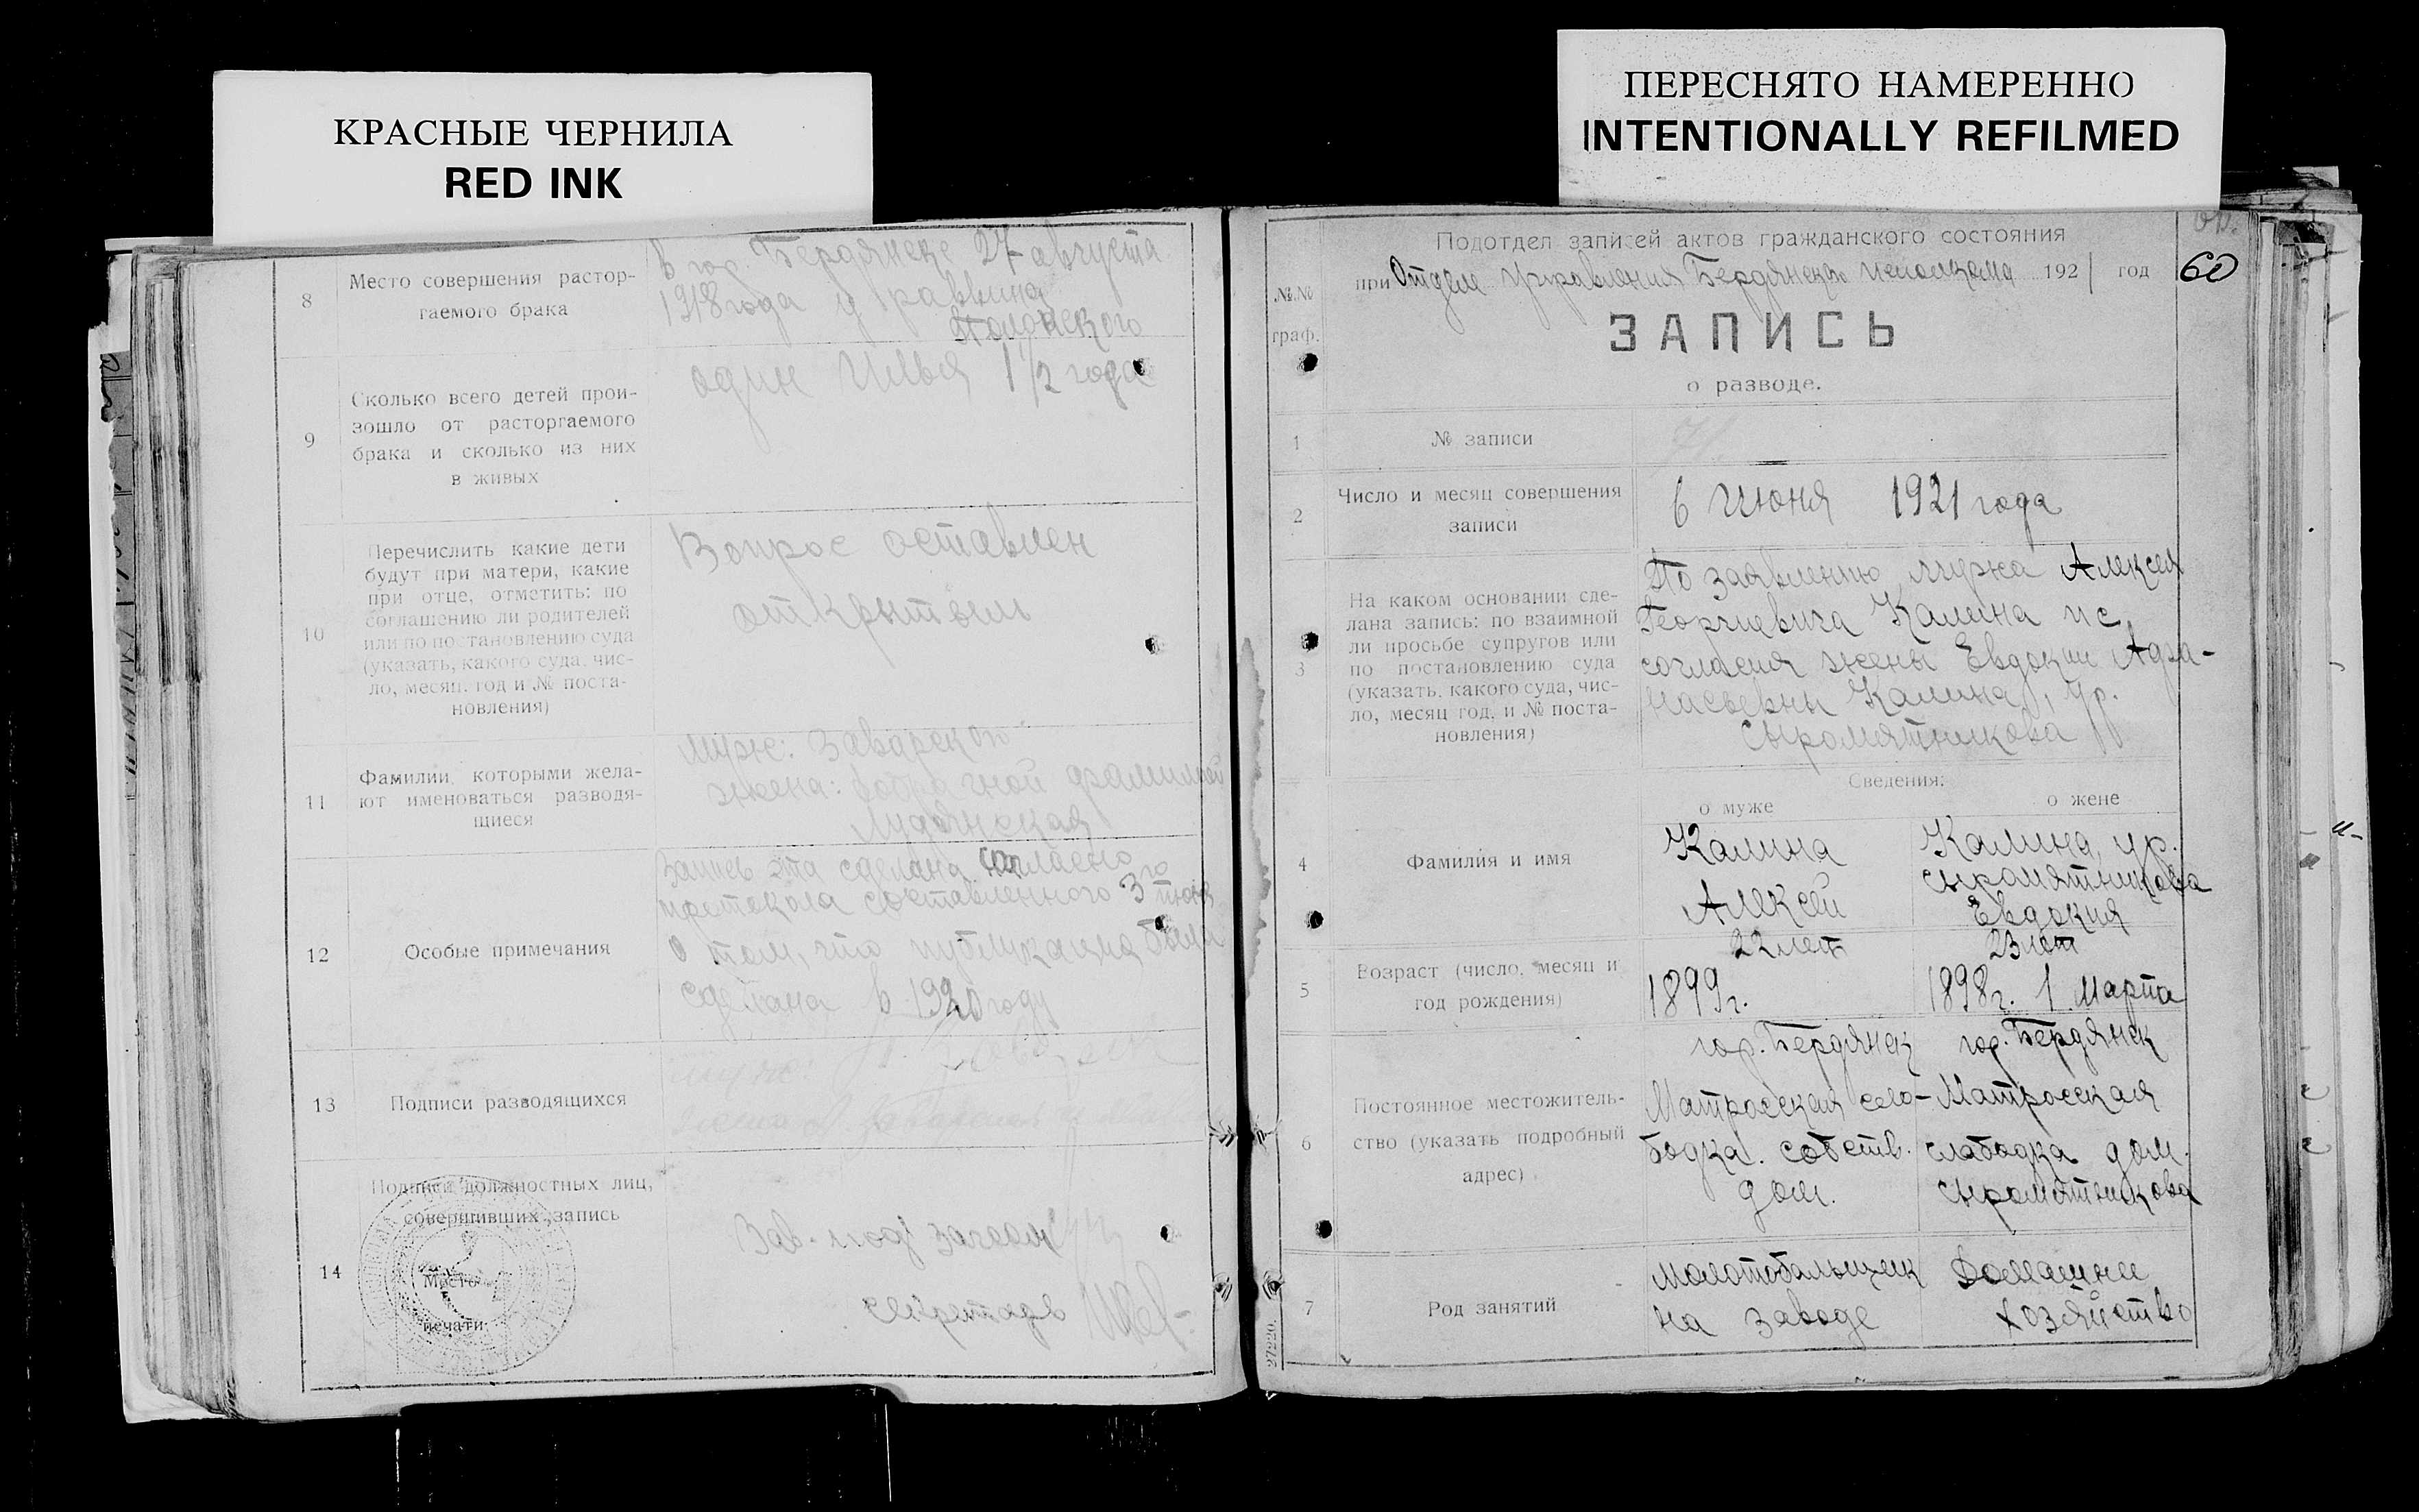 КРАСНЫЕ ЧЕРНИЛА
RED INK
ПЕРЕСНЯТО НАМЕРЕННО
INTENTIONALLY REFILMED
8
Место совершения растор-
гаемого брака
в гор. Бердянске 27 августа
1918 года у раввина
9
Сколько всего детей прои-
зошло от расторгаемого
брака и сколько из них
в живых
один Илья 1 1/2 года
10
Перечислить какие дети
будут при матери, какие
при отце, отметить: по
соглашению ли родителей
или по постановлению суда
(указать, какого суда, чис-
ло, месяц, год и № поста-
новления)
Вопрос оставлен
открытым
11
Фамилии, которыми жела-
ют именоваться разводя-
щиеся
муж: Заварской
жена: добрачной фамилией
12
Особые примечания
Запись эта сделана согласно
протокола составленного 3го июня
о том, что публикация была
сделана в 1920 году
13
Подписи разводящихся
муж:
жена
14
Подписи должностных лиц,
совершивших запись
Место
печати
Зав. под
секретарь
Подотдел записей актов гражданского состояния
при Отделе Управления Бердянском исполкома 1921 год
60
№№
граф.
ЗАПИСЬ
о разводе.
1
№ записи
71.
2
Число и месяц совершения
записи
6 июня 1921 года
3
На каком основании сде-
лана запись: по взаимной
ли просьбе супругов или
по постановлению суда
(указать, какого суда, чис-
ло, месяц год, и № поста-
новления)
По заявлению мужа Алексея
Георгиевича Калина и с
согласия жены Евдокии Афа-
насьевны Калина, ур.
Сыромятникова
Сведения:
о муже
о жене
4
Фамилия и имя
Калина
Алексей
Калина, ур.
Сыромятникова
Евдокия
5
Возраст (число, месяц и
год рождения)
22 лет
1899г.
23 лет
1898г. 1 Марта
6
Постоянное местожитель-
ство (указать подробный
адрес)
гор. Бердянск
Матросская сло-
бодка. собств.
дом.
гор. Бердянск
Матросская
слабодка дом.
Сыромятникова
7
Род занятий
Молотобальщик
на заводе
Домашнее
хозяйство
27220.